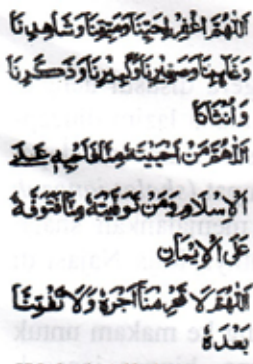 اَللّٰهُمَّ اغْفِرْ لِحَيِّنَا وَمَيِّتِنَا وَشَاهِدِنَا
وَغَائِبِنَا وَصَغِيْرِنَا وَكَبِيْرِنَا وَذَكَرِنَا
وَأُنْثَانَا
اَللّٰهُمَّ مَنْ اَحْيَيْتَهُ مِنَّا فَاَحْيِهِ عَلَى
الْاِسْلَامِ وَمَنْ تَوَفَّيْتَهُ مِنَّا فَتَوَفَّهُ
عَلَى الْاِيْمَانِ
اَللّٰهُمَّ لَا تَحْرِمْنَا اَجْرَهُ وَلَا تَفْتِنَّا
بَعْدَهُ